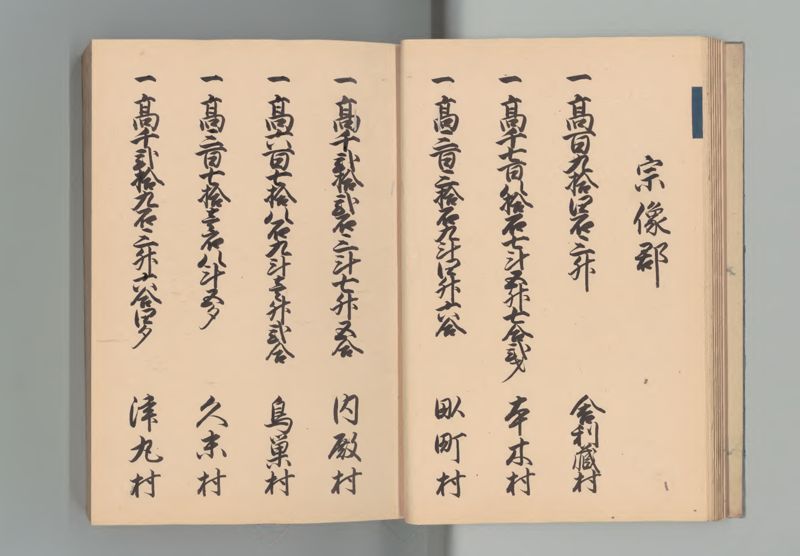 宗像郡
一高百九拾四石三升 舎利蔵村
一高千七百八拾石七斗五升七合弐夕 本木村
一高三百三拾石九斗四升六合 畝町村
一高千弐拾弐石三斗七升五合 内殿村
一高六百七拾八石九斗壱升弐合 鳥巣村
一高三百七拾壱石八斗五夕 久末村
一高千弐拾九石三升六合四夕 津丸村